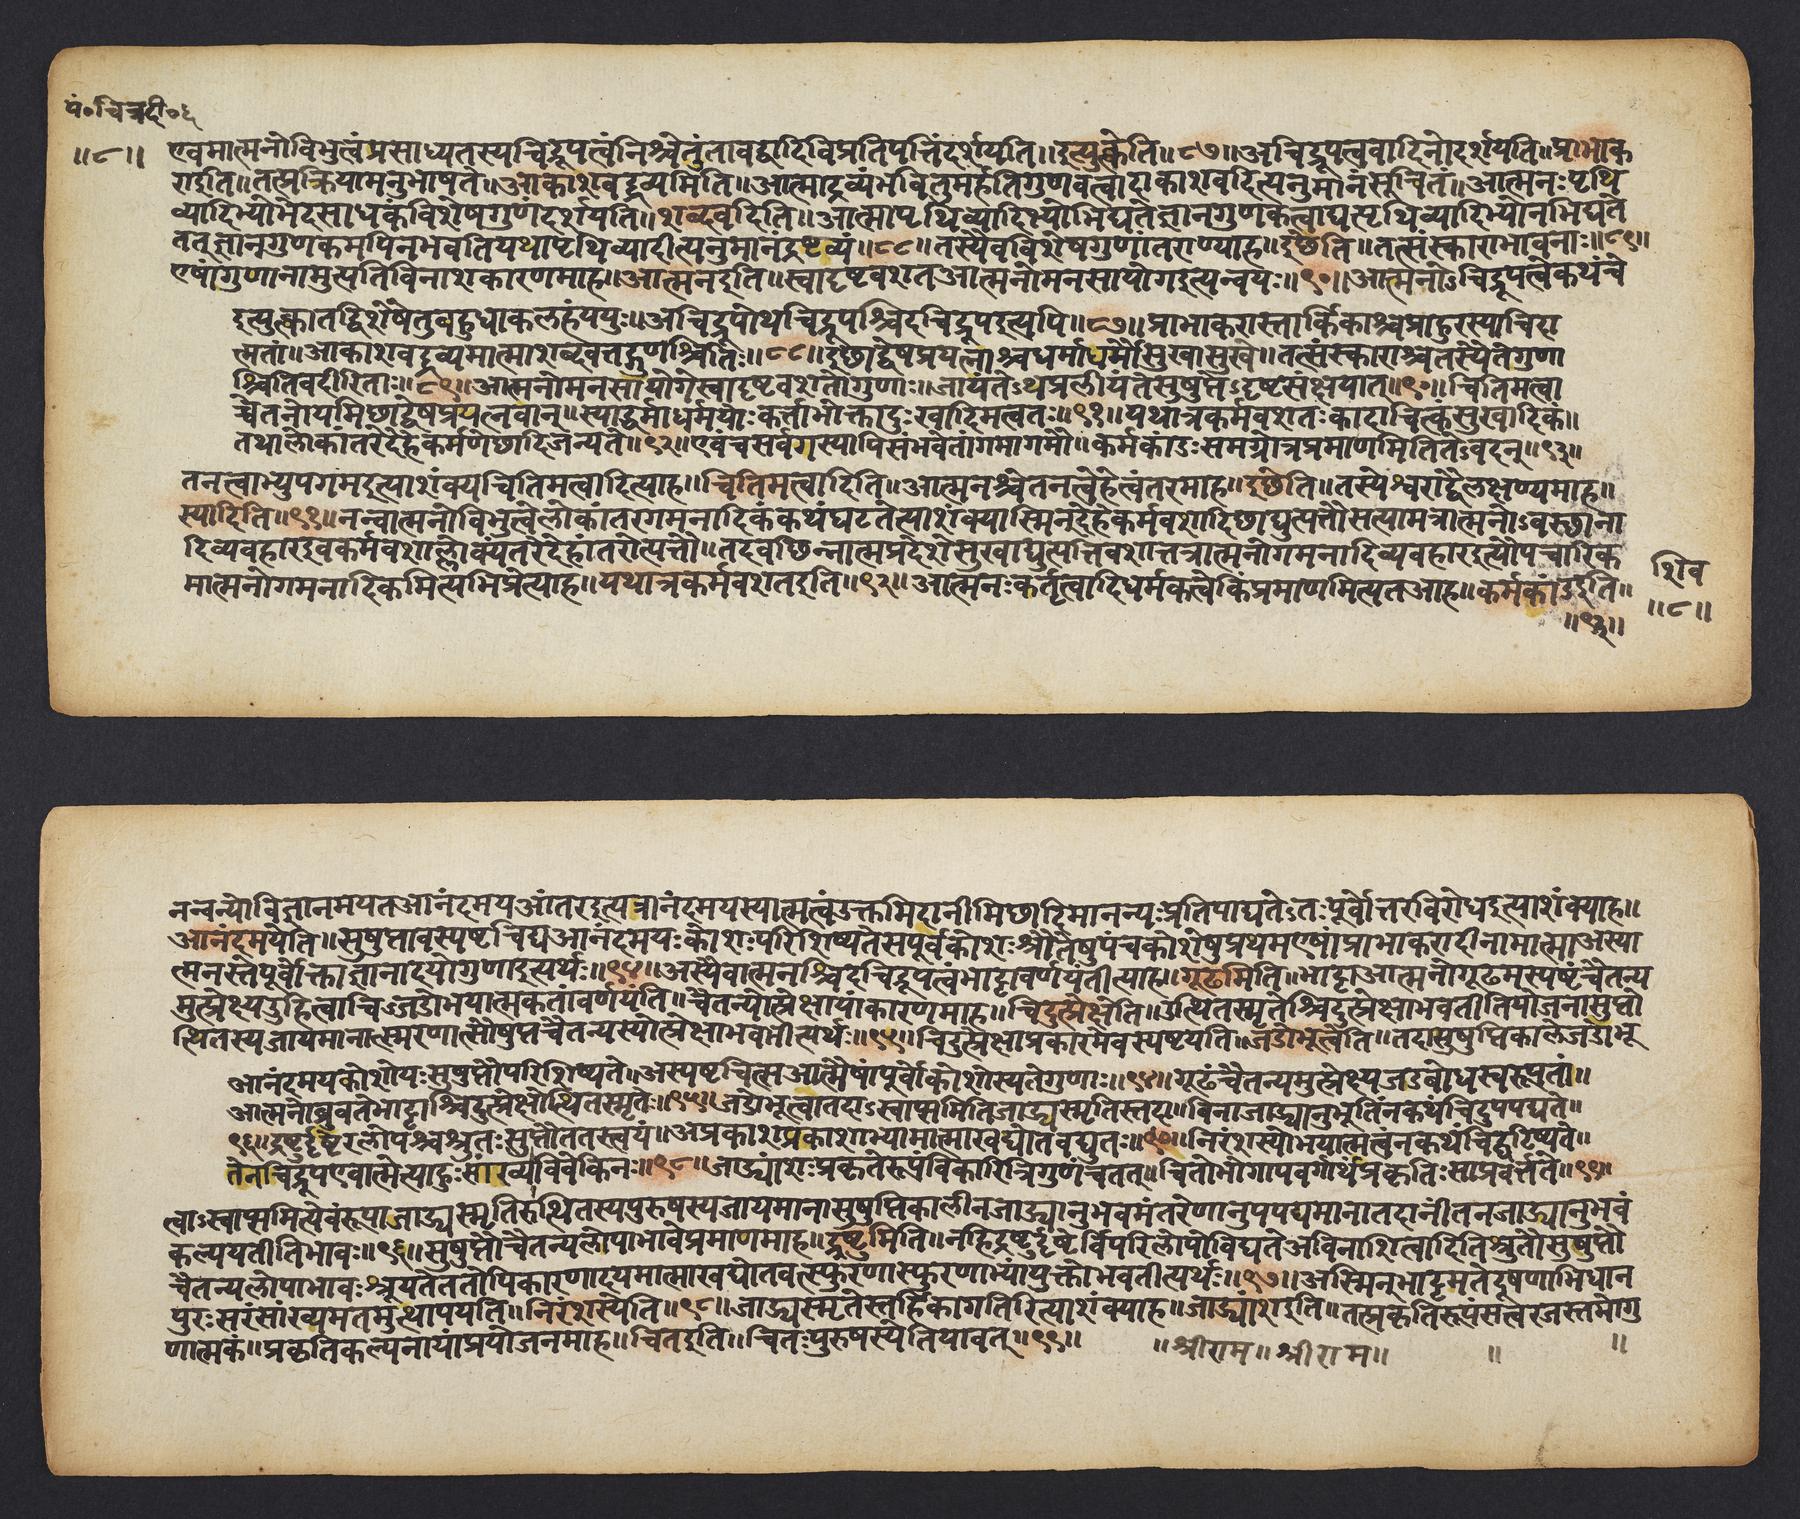 पं०चित्रदी०६
॥८॥
एवमात्मनोविभुत्वंप्रसाध्यतस्यचिद्रूपत्वंनिश्चेतुंतावद्वादिविप्रतिपत्तिंदर्शयति॥इत्युक्त्वेति॥८७॥अचिद्रूपत्ववादिनोदर्शयति॥प्राभाक
राइति॥तत्प्रक्रियामनुभाषते॥आकाशवद्द्रव्यमिति॥आत्माद्रव्यंभवितुमर्हतिगुणवत्वादाकाशवदित्यनुमानंसूचितं॥आत्मनःपृथि
व्यादिभ्योभेदसाधकंविशेषगुणंदर्शयति॥शब्दवदिति॥आत्मापृथिव्यादिभ्योभिद्यतेज्ञानगुणकत्वाद्यत्पृथिव्यादिभ्योनभिद्यते
ततूज्ञानुगुणकमपिनभवतियथापृथिव्यादीत्यनुमानंद्रष्टव्यं॥८८॥तस्यैवविशेषगुणांतराण्याह॥इछेति॥तत्संस्काराभावनाः॥८९॥
एषांगुणानामुत्पतिविनाशकारणमाह॥आत्मनइति॥स्वादृष्टवशतआत्मनोमनसायोगइत्यन्वयः॥९०॥आत्मनोऽचिद्रूपत्वेकथंचे
इत्युत्काातद्विशेषेतुबहुधाकलहंययुः॥अचिद्रूपोथचिद्रूपश्चिदचिद्रूपइत्यपि॥८७॥प्राभाकरास्तार्किकाश्चप्राहुरस्याचिदा
त्मतां॥आकाशवद्द्रव्यमात्माशब्दवत्तद्गुणश्चितिः॥८८॥इछाद्वेषप्रयत्नाश्चधर्माधर्मौसुखासुखे॥तत्संस्काराश्चतस्यैतेगुणा
श्चितिवदीरिताः॥८९॥आत्मनोमनसायोगेस्वादृष्टवशतोगुणाः॥जायंतेऽथप्रलीयंतेसुषुप्तेऽदृष्टसंक्षयात्॥९०॥चितिमत्वा
च्चेतनोयमिछाद्वेषप्रयत्नवान्॥स्याद्धर्माधर्मयोःकर्त्ताभोक्तादुःखादिमत्वतः॥९१॥यथात्रकर्मवशतःकादाचित्कसुखादिकं॥
तथालोकांतरेदेहेकर्मणेछादिजन्यते॥९२॥एवंचसर्वगस्यापिसंभवेतांगमागमौ॥कर्मकांडःसमग्रोत्रप्रमाणमितितेऽवदन्॥९३॥
तनत्वाभ्युपगमइत्याशंक्यचितिमत्वादित्याह॥चितिमत्वादिति॥आत्मनश्चेतनत्वेहेत्वंतरमाह॥इछेति॥तस्येश्वराद्वैलक्षण्यमाह॥
स्यादिति॥९१॥नन्वात्मनोविभुत्वेलोकांतरगमनादिकंकथंघटतेत्याशंक्यास्मिन्देहेकर्मवशादिछाद्युत्पत्तौसत्यामत्रात्मनोऽवस्थाना
दिव्यवहारइवकर्मवशाल्लोक्यंतरेदेहांतरोत्पत्तौ॥तदवछिन्नात्मप्रदेशेसुखाद्युत्पत्तिवशात्तत्रात्मनोगमनादिव्यवहारइत्यौपचारिक
मात्मनोगमनादिकमित्यभिप्रेत्याह॥यथात्रकर्मवशतइति॥९२॥आत्मनःकर्तृत्वादिधर्मकत्वेकिंप्रमाणमित्यतआह॥कर्मकांडइति॥
॥९३॥
शिव
॥८॥
नन्वन्योविज्ञानमयतआनंदमयआंतरइत्यत्रानंदमयस्यात्मत्वंउक्तमिदानीमिछादिमानन्यःप्रतिपाद्यतेऽतःपूर्वोत्तरविरोधइत्याशंक्याह॥
आनंदमयेति॥सुषुप्तावस्पष्टचिद्यआनंदमयःकोशःपरिशिष्यतेसपूर्वकोशःश्रौतेषुपंचकोशेषुप्रथमएषांप्राभाकरादीनामात्माअस्या
त्मनस्तेपूर्वोक्ताज्ञानादयोगुणाइत्यर्थः॥९४॥अस्यैवात्मनश्चिदचिद्रूपत्वंभाट्टावर्णयंतीत्याह॥गूढमिति॥भाट्टाआत्मनोगूढमस्पष्टंचैतन्य
मुत्प्रेक्ष्यऊहित्वाचिज्जडोभयात्मकतांवर्णयंति॥चैतन्योत्प्रेक्षायांकारणमाह॥चिदुत्प्रेक्षेति॥उत्थितस्मृतेश्चिदुत्प्रेक्षाभवतीतियोजनासुप्तो
त्थितस्यजायमानात्स्मरणात्सौषुप्तचैतन्यस्योत्प्रेक्षाभवतीत्यर्थः॥९५॥चिदुत्प्रेक्षाप्रकारमेवस्पष्टयति॥जडोभूत्वेति॥तदासुषुप्तिकालेजडोभू
आनंदमयकोशोयःसुषुप्तौपरिशिष्यते॥अस्पष्टचित्सआत्मैषांपूर्वोकोशोस्यतेगुणाः॥९४॥गूढंचैतन्यमुत्प्रेक्ष्यजडबोधस्वरूपतां॥
आत्मनोब्रुवतेभाट्टाश्चिदुत्प्रेक्षोत्थितस्मृतेः॥९५॥जडोभूत्वातदाऽस्वाप्समितिजाड्यस्मृतिस्तदा॥विनाजाड्यानुभूतिंनकथंचिदुपपद्यते॥
९६॥द्रष्टुर्दृष्टेरलोपश्चश्रुतःसुप्तौततस्त्वयं॥अप्रकाशप्रकाशाभ्यामात्माखद्योतवद्युतः॥९७॥निरंशस्योभयात्मत्वंनकथंचिद्घटिष्यते॥
तेनचिद्रूपएवात्मेत्याहुःसांख्याविवेकिनः॥९८॥जाड्यांशःप्रकृतेरूपंविकारित्रिगुणंचतत्॥चितोभोगापवर्गार्थंप्रकृतिःसाप्रवर्त्तते॥९९॥
त्वाऽस्वाप्समित्येवंरूपाजाड्यस्मृतिरुत्थितस्यपुरुषस्यजायमानासुषुप्तिकालीनजाड्यानुभवमंतरेणानुपपद्यमानातदानींतनजाड्यानुभवं
कल्पयतीतिभावः॥९६॥सुषुप्तौचैतन्यलोपाभावेप्रमाणमाह॥द्रष्टुमिति॥नहिद्रष्टुर्दृष्टेर्विपरिलोपोविद्यतेअविनाशित्वादितिश्रुतौसुषुप्तौ
चैतन्यलोपाभावःश्रूयतेततोपिकारणादयमात्माखद्योतवत्स्फुरणास्फुरणाभ्यांयुक्तोभवतीत्यर्थः॥९७॥अस्मिन्भाट्टमतेदूषणाभिधान
पुरःसरंसांख्यमतमुत्थापयति॥निरंशस्येति॥९८॥जाड्यस्मृतेस्तर्हिकागतिरित्याशंक्याह॥जाड्यांशइति॥तत्प्रकृतिरूपंसत्वरजस्तमोगु
णात्मकं॥प्रकृतिकल्पनायांप्रयोजनमाह॥चितइति॥चितःपुरुषस्येतियावत्॥९९॥ ॥श्रीराम॥श्रीराम॥ ॥ ॥